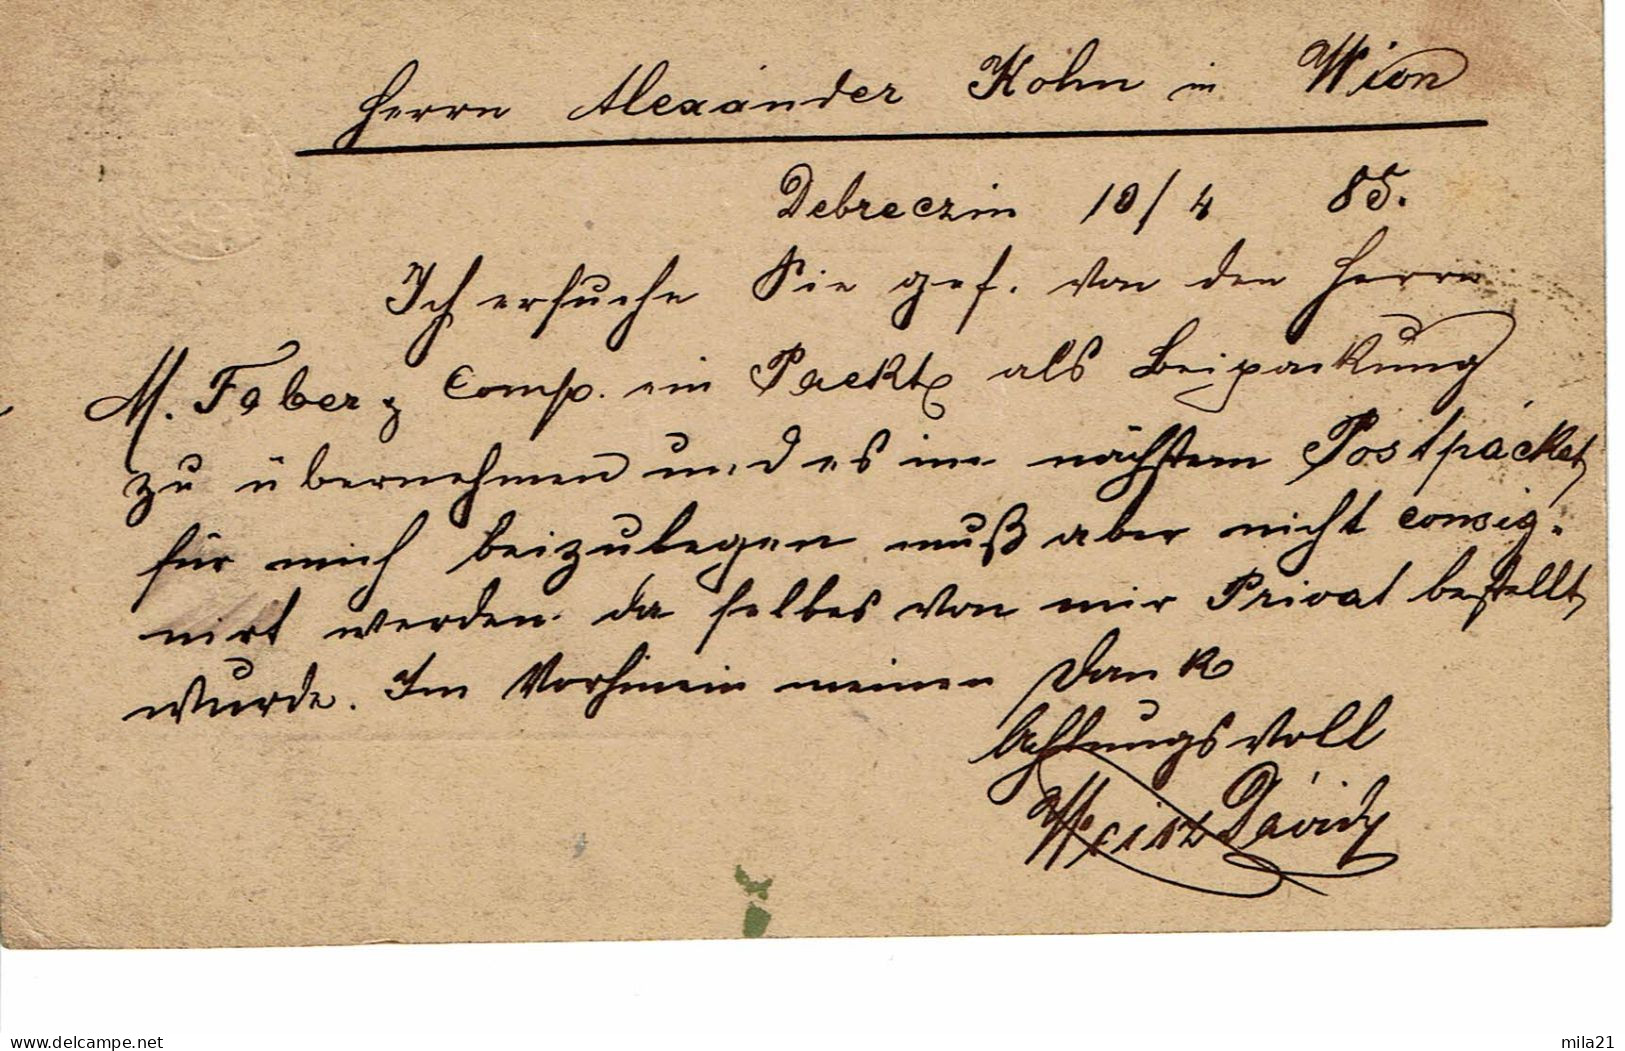 Herrn Alexander Kohn in Wien
Debreczin 10/4 85.
Ich ersuche Sie gef. von den Herrn
M. Faber & Comp. ein Packt als Beipackung
zu übernehmen und es im nächstem Postpácket
für mich beizulegen muß aber nicht consig-
nirt werden da selbes von mir Privat bestellt
wurde. Im Vorhinein meinen Dank
Achtungsvoll
Weisz Dávid
www.delcampe.net
mila21